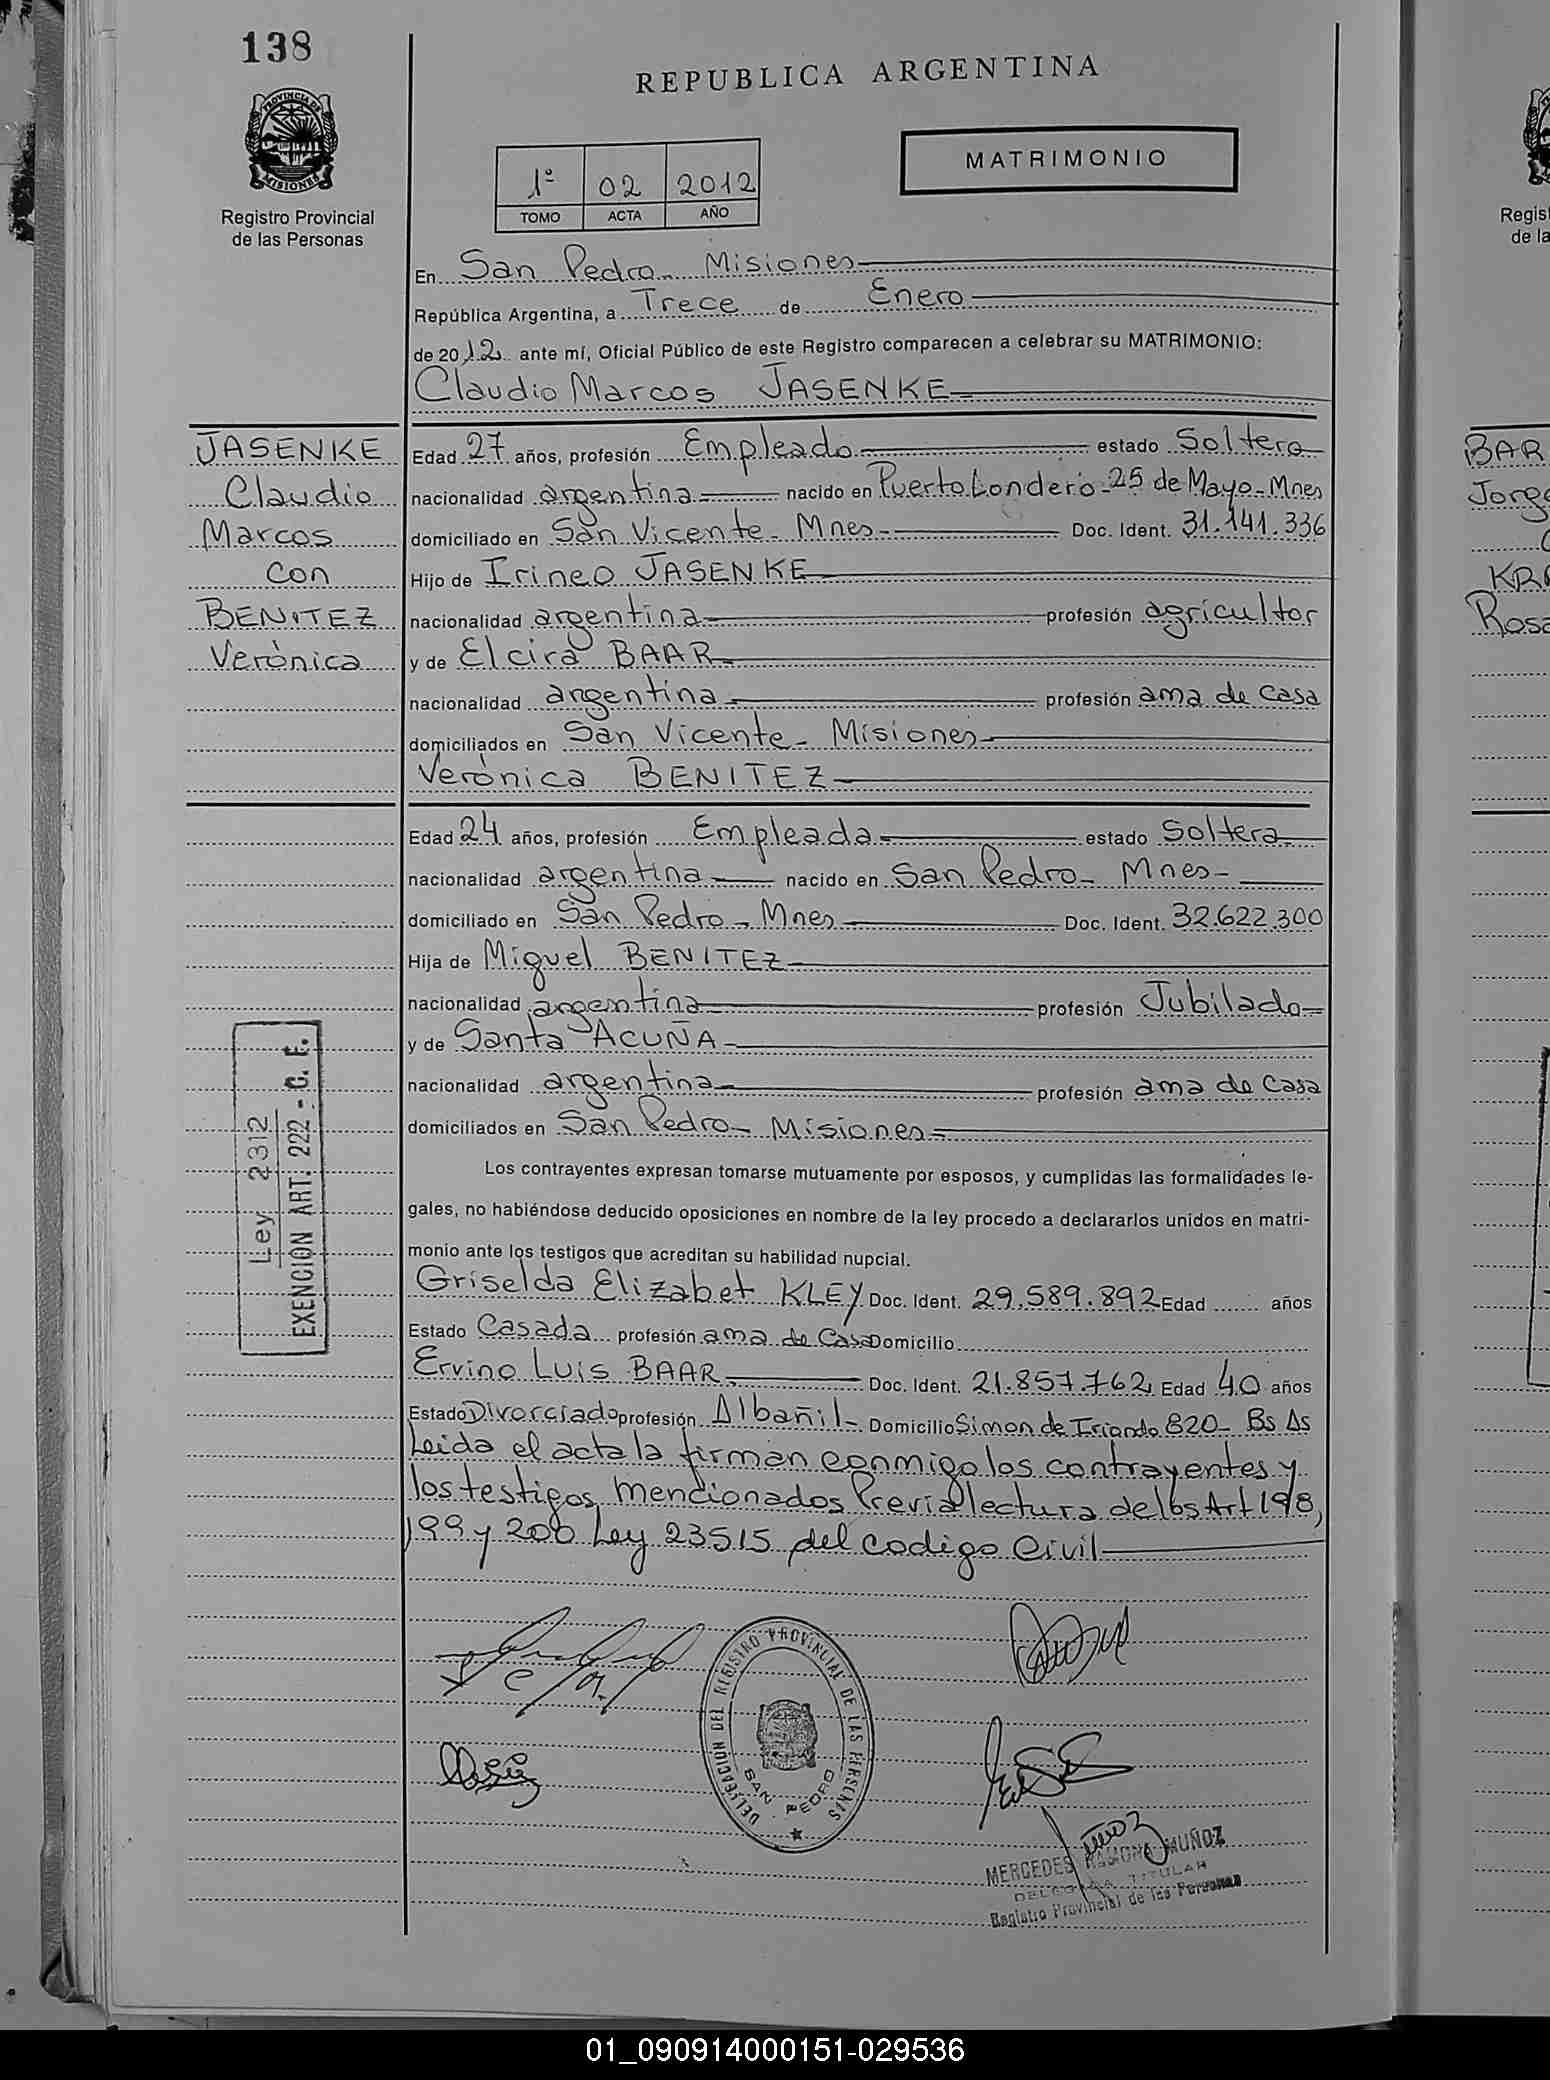 138
REPUBLICA ARGENTINA
PROVINCIA DE
MISIONES
Registro Provincial
de las Personas
1º 02 2012
TOMO ACTA AÑO
MATRIMONIO
En San Pedro - Misiones
República Argentina, a Trece de Enero
de 2012 ante mí, Oficial Público de este Registro comparecen a celebrar su MATRIMONIO:
Claudio Marcos JASENKE
JASENKE
Claudio
Marcos
con
BENITEZ
Verónica
Edad 27 años, profesión Empleado estado Soltero
nacionalidad argentina nacido en Puerto Londero - 25 de Mayo - Mnes
domiciliado en San Vicente - Mnes - Doc. Ident. 31.141.336
Hijo de Irineo JASENKE
nacionalidad argentina profesión agricultor
y de Elcira BAAR
nacionalidad argentina profesión ama de casa
domiciliados en San Vicente - Misiones
Verónica BENITEZ
Edad 24 años, profesión Empleada estado Soltera
nacionalidad argentina nacido en San Pedro - Mnes -
domiciliado en San Pedro - Mnes Doc. Ident. 32.622.300
Hija de Miguel BENITEZ
nacionalidad argentina profesión Jubilado
y de Santa ACUÑA
nacionalidad argentina profesión ama de casa
domiciliados en San Pedro - Misiones
Ley 2312
EXENCION ART. 222 - C. F.
Los contrayentes expresan tomarse mutuamente por esposos, y cumplidas las formalidades le-
gales, no habiéndose deducido oposiciones en nombre de la ley procedo a declararlos unidos en matri-
monio ante los testigos que acreditan su habilidad nupcial.
Griselda Elizabet KLEY Doc. Ident. 29.589.892 Edad años
Estado Casada profesión ama de Casa Domicilio
Ervino Luis BAAR Doc. Ident. 21.857.762 Edad 40 años
Estado Divorciado profesión Albañil - Domicilio Simon de Iriondo 820 - Bs As
Leida el acta la firman conmigo los contrayentes y
los testigos mencionados Previa lectura de los Art 198,
199 y 200 Ley 23515 del codigo Civil
DELEGACION DEL REGISTRO PROVINCIAL DE LAS PERSONAS
SAN PEDRO
MERCEDES RAMONA MUÑOZ
DELEGADA TITULAR
Registro Provincial de las Personas
Regist
de la
BAR
Jorge
KRA
Rosa
01_090914000151-029536